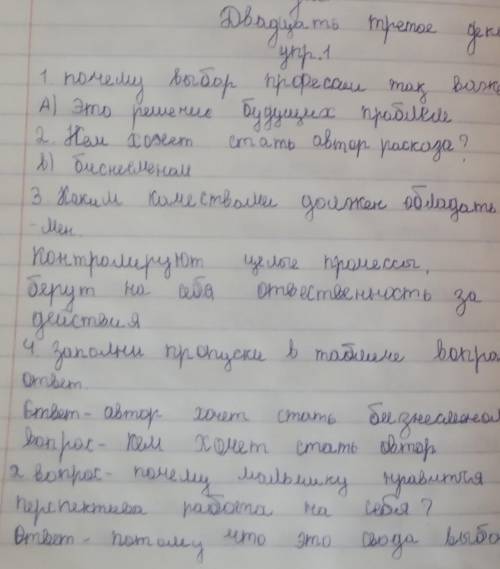 Двадцать третое дек
упр.1
1. почему выбор професии так важе
А) Это решение будущих проблем
2. Кем хочет стать автор расказа?
В) биснесменом
3. Каким качествами должен обладать
- мен.
Контролируют целые процессы,
берут на себя отвественность за
действия
4. заполни пропуски в таблице вопро
ответ.
Ответ - автор хочет стать бизнесменом
Вопрос - Кем хочет стать автор
2 вопрос - почему мальчику нравится
перспектива работа на себя?
Ответ - потому что это свода выбо